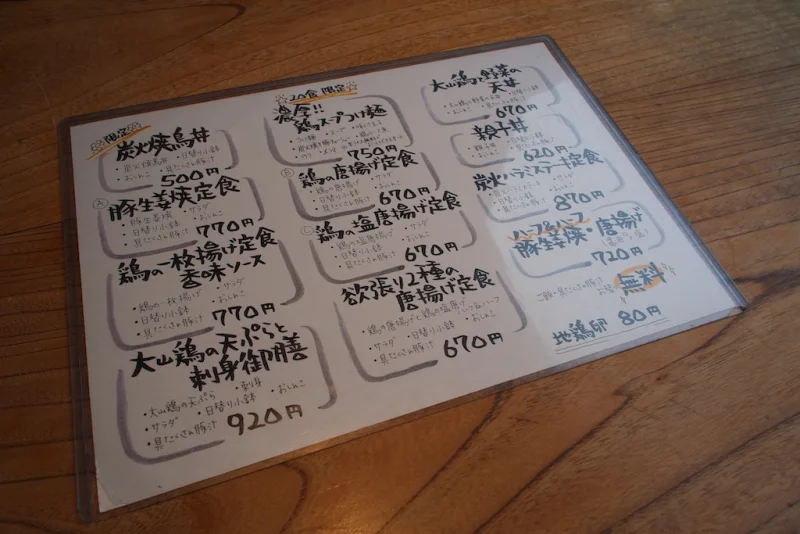 限定
炭火焼鳥丼
・炭火焼鳥丼 ・日替り小鉢
・おしんこ ・具だくさん豚汁
500円
A
豚生姜焼定食
・豚生姜焼 ・サラダ
・日替り小鉢 ・おしんこ
・具だくさん豚汁
770円
鶏の一枚揚げ定食
香味ソース
・鶏の一枚揚げ ・サラダ
・日替り小鉢 ・おしんこ
・具だくさん豚汁
770円
大山鶏の天ぷらと
刺身御膳
・大山鶏の天ぷら ・刺身
・サラダ ・日替り小鉢 ・おしんこ
・具だくさん豚汁
920円
20食限定
濃厚!!
鶏スープつけ麺
750円
B
鶏の唐揚げ定食
・鶏の唐揚げ ・サラダ
・日替り小鉢 ・おしんこ
・具だくさん豚汁
670円
C
鶏の塩唐揚げ定食
・鶏の塩唐揚げ ・サラダ
・日替り小鉢 ・おしんこ
・具だくさん豚汁
670円
欲張り2種の
唐揚げ定食
・鶏の唐揚げと鶏の塩唐揚げ
・サラダ ・日替り小鉢 ・おしんこ
・具だくさん豚汁
670円
大山鶏と野菜の
天丼
670円
親子丼
620円
炭火ハラミステーキ定食
870円
ハーフ&ハーフ
豚生姜焼・唐揚げ
720円
ご飯・具だくさん豚汁
お替り
無料
地鶏卵 80円